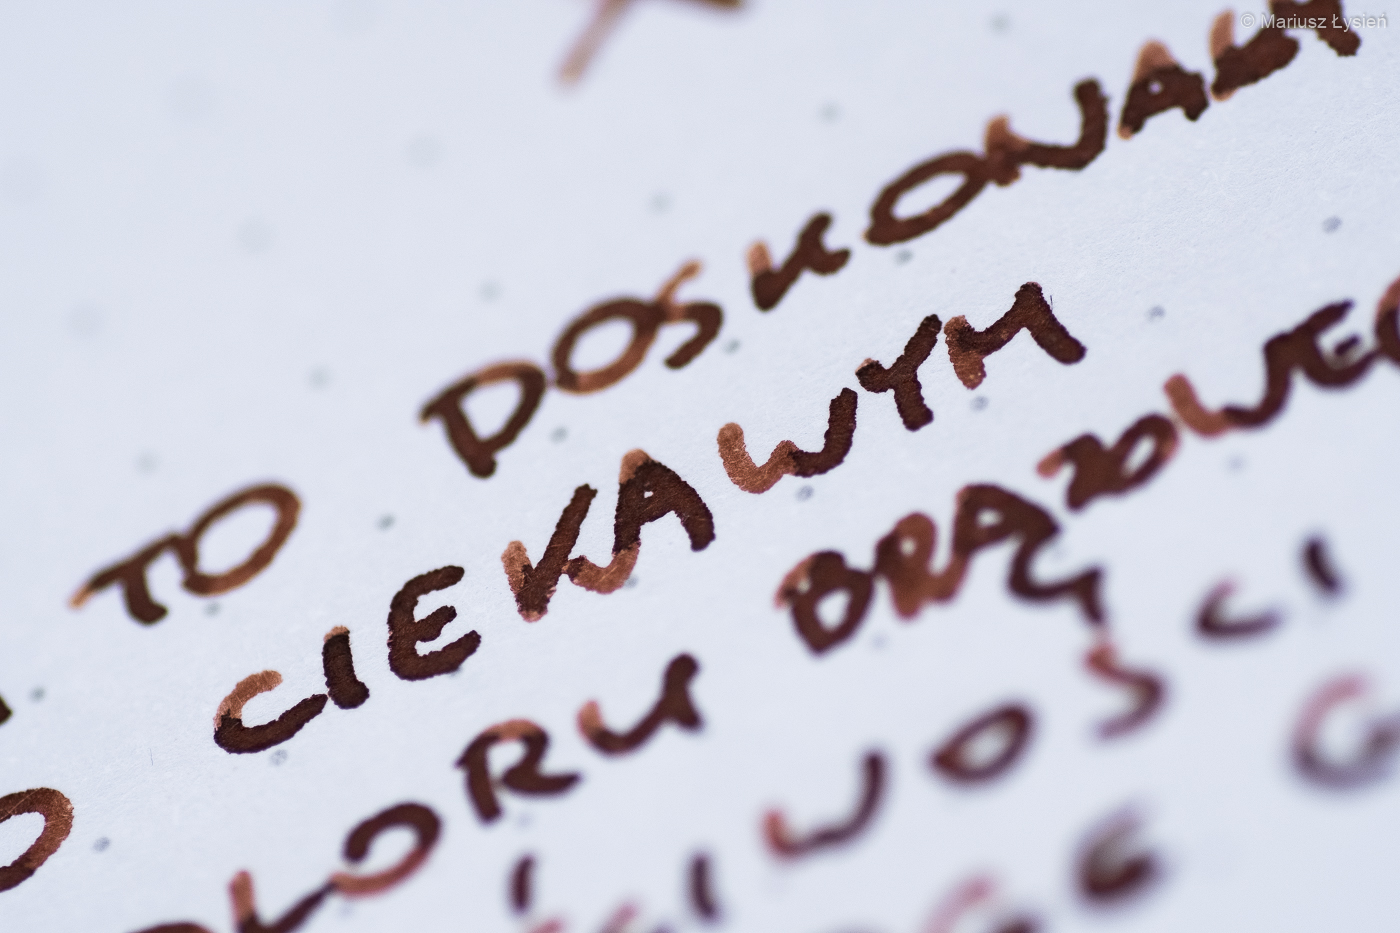 © Mariusz Łysień
TO DOSKONAŁ
CIEKAWYM
KOLORU BRĄZOWEG
WOŚCI